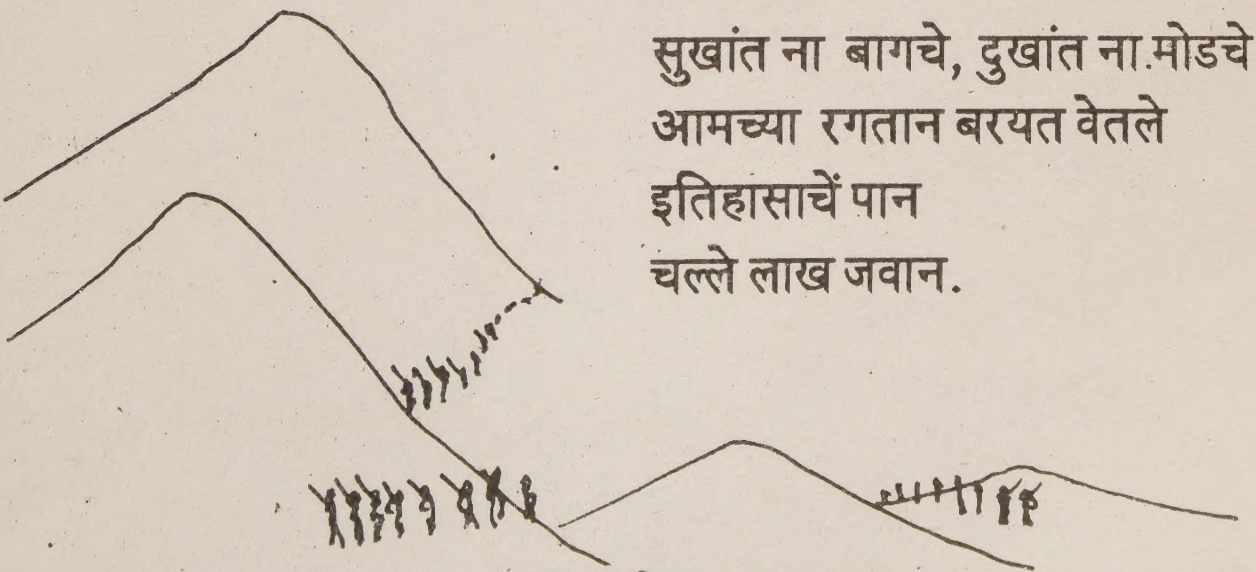 सुखांत ना बागचे, दुखांत ना मोडचे
आमच्या रगतान बरयत वेतले
इतिहासाचें पान
चल्ले लाख जवान.